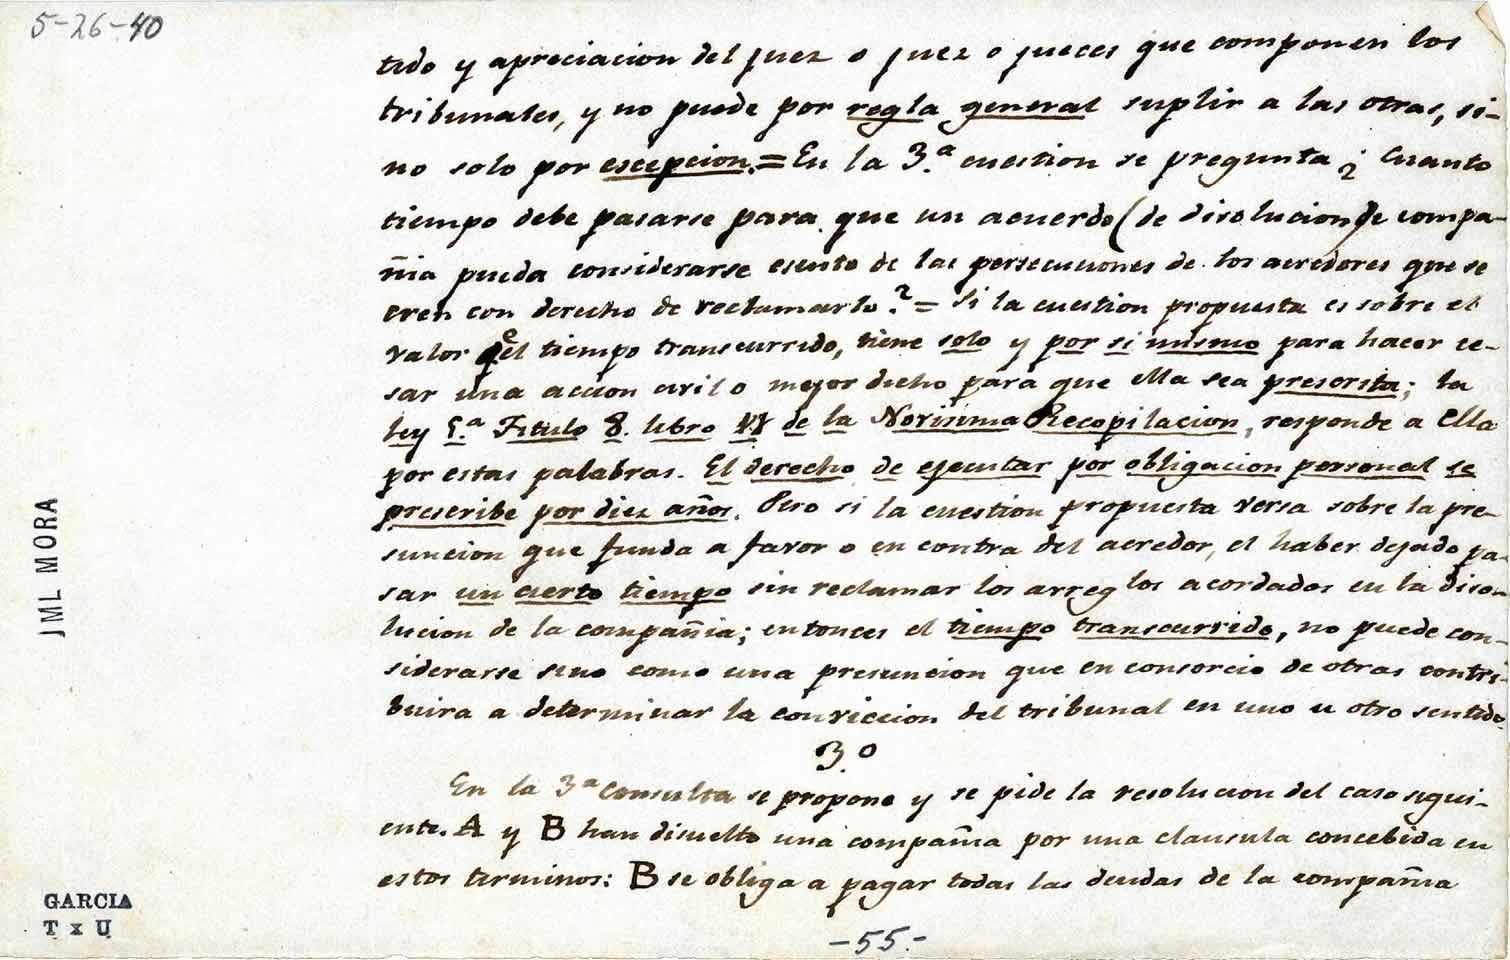 5-26-40
tido y apreciacion del juez o juez o jueces que componen los
tribunales, y no puede por regla general suplir a las otras, si-
no solo por escepcion.= En la 3.ª cuestion se pregunta ¿ Cuanto
tiempo debe pasarse para que un acuerdo (de disolucion de compa-
ñia pueda considerarse esento de las persecuciones de los acredores que se
cren con derecho de reclamarlo?= Si la cuestion propuesta es sobre el
valor qe el tiempo transcurrido, tiene solo y por si mismo para hacer ce-
sar una accion civil o mejor dicho para que ella sea prescrita; la
ley 5.ª Titulo 8. libro 11 de la Novisima Recopilacion, responde a Ella
por estas palabras. El derecho de ejecutar por obligacion personal se
prescribe por diez años. Pero si la cuestion propuesta versa sobre la pre-
suncion que funda a favor o en contra del acredor, el haber dejado pa-
sar un cierto tiempo sin reclamar los arreglos acordados en la diso-
lucion de la compañia; entonces el tiempo transcurrido, no puede con-
siderarse sino como una presuncion que en consorcio de otras contri-
buira a determinar la conviccion del tribunal en uno u otro sentido.
3.º
En la 3ª Consulta se propone y se pide la resolucion del caso sigui-
ente. A y B han disuelto una compañia por una clausula concebida en
estos terminos: B se obliga a pagar todas las deudas de la compañia
JML MORA
GARCIA
T x U
-55.-